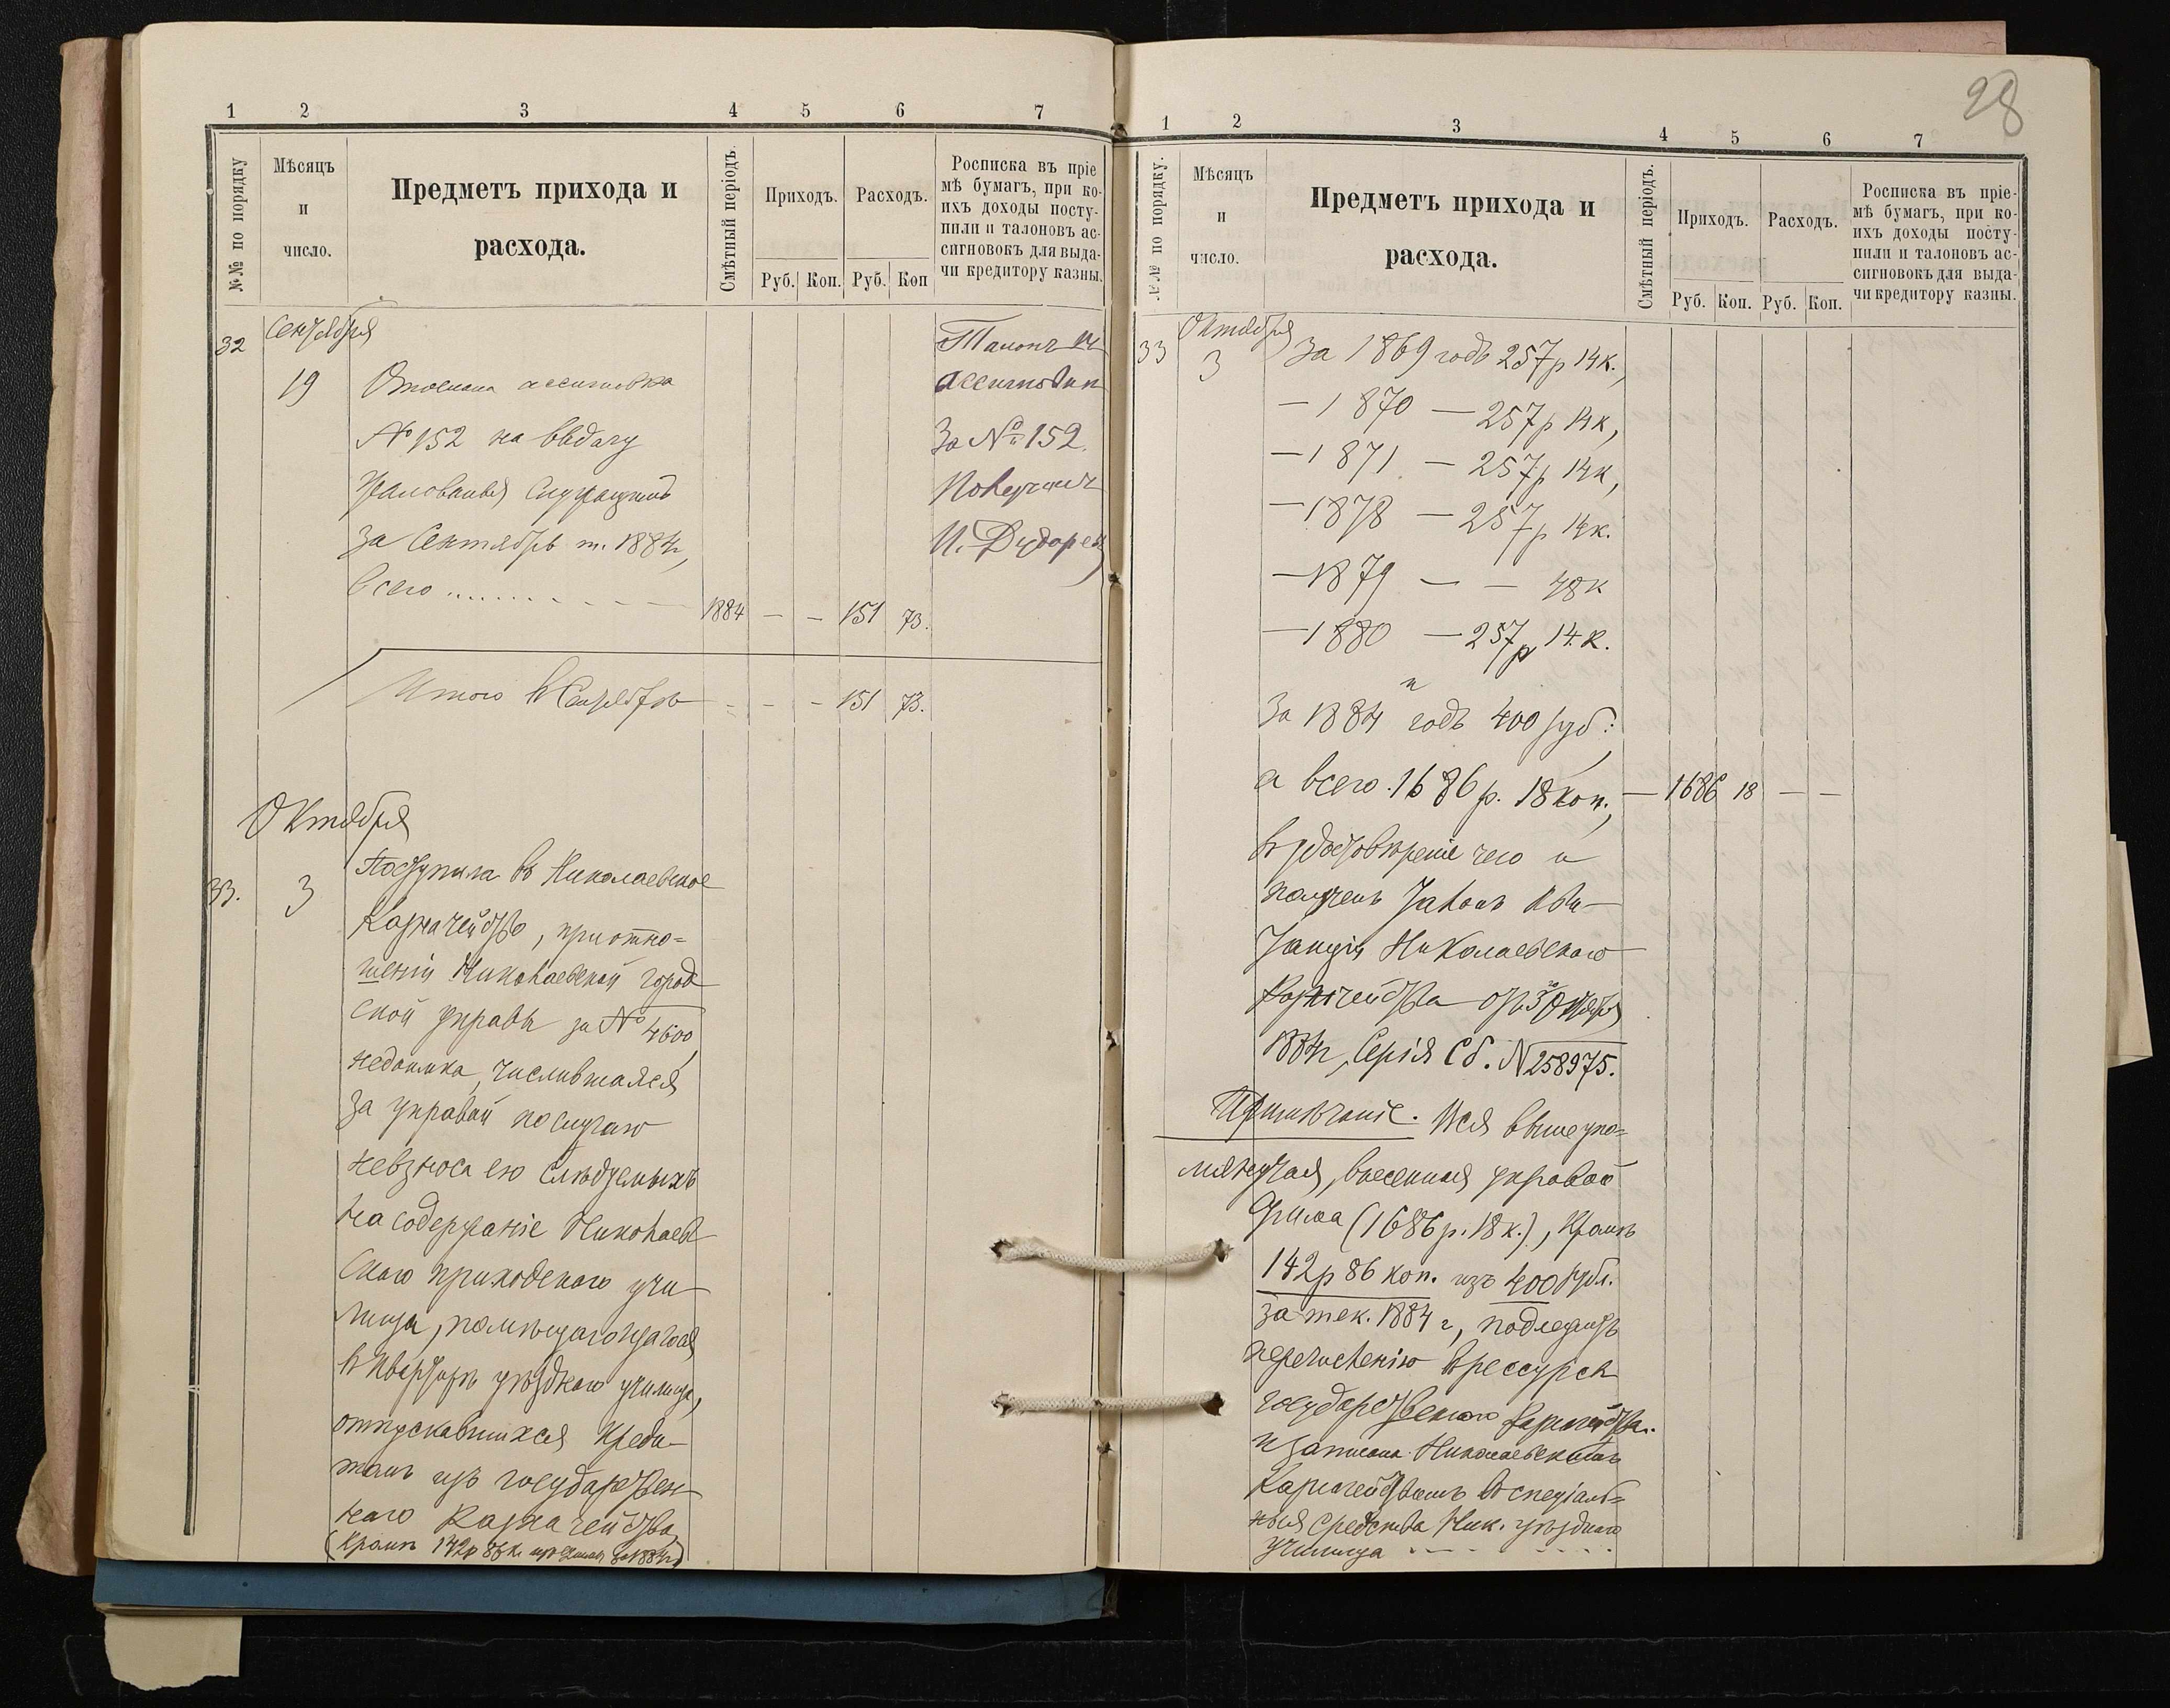 1 2 3 4 5 6 7
№№ по порядку
Мѣсяцъ
и
число.
Предметъ прихода и
расхода.
Смѣтный періодъ.
Приходъ.
Расходъ.
Руб. Коп. Руб. Коп
Росписка въ пріе
мѣ бумагъ, при ко-
ихъ доходы посту-
пили и талоновъ ас-
сигновокъ для выда-
чи кредитору казны.
32 Сентября
19
Отослана ассигновка
№ 152 на выдачу
жалованья служащимъ
за Сентябрь м. 1884 г,
Всего
1884 — — 151 73.
Талонъ къ
ассигновки
За № 152.
Получилъ
Итого въ Сентябрѣ - - - 151 73.
Октября
33. 3
Поступила въ Николаевское
Казначейство, при отно=
шеніи Николаевской город
ской управы за № 4600
недоимка, числившаяся
за управой по случаю
невзноса ею слѣдуемыхъ
на содержаніе Николаев
скаго приходскаго учи
лища, помѣщающагося
въ квартирѣ уѣзднаго училища,
отпускавшихся креди-
томъ изъ государствен
наго Казначейства
(кромѣ 142р 86к
28
1 2 3 4 5 6 7
№№ по порядку.
Мѣсяцъ
и
число.
Предметъ прихода и
расхода.
Смѣтный періодъ.
Приходъ.
Расходъ.
Руб. Коп. Руб. Коп.
Росписка въ пріе-
мѣ бумагъ, при ко-
ихъ доходы посту-
пили и талоновъ ас-
сигновокъ для выда-
чи кредитору казны.
33 Октября
3
За 1869 годъ 257р 14к.,
— 1870 — 257р 14к,
— 1871 — 257р 14к,
— 1878 — 257р 14к.
— 1879 — — 48к
— 1880 — 257р 14.к.
и
За 1884 годъ 400 руб:
а всего 1686 р. 18 коп.,
— 1686 18 — —
въ удостовѣреніе чего и
полученъ талонъ кви-
танціи Николаевскаго
Казначейства отъ 3го Октября
1884г, Серія Сб. № 258975.
Примѣчаніе. Вся вышеупо=
мянутая, внесенная управой
сумма (1686 р. 18 к.), кромѣ
142р 86 коп. изъ 400 рубл.
за тек. 1884 г, подлежитъ
перечисленію въ рессурсы
государственнаго Казначейства.
и записана Николаевскимъ
Казначействомъ въ спеціаль=
ныя средства Ник. уѣзднаго
училища